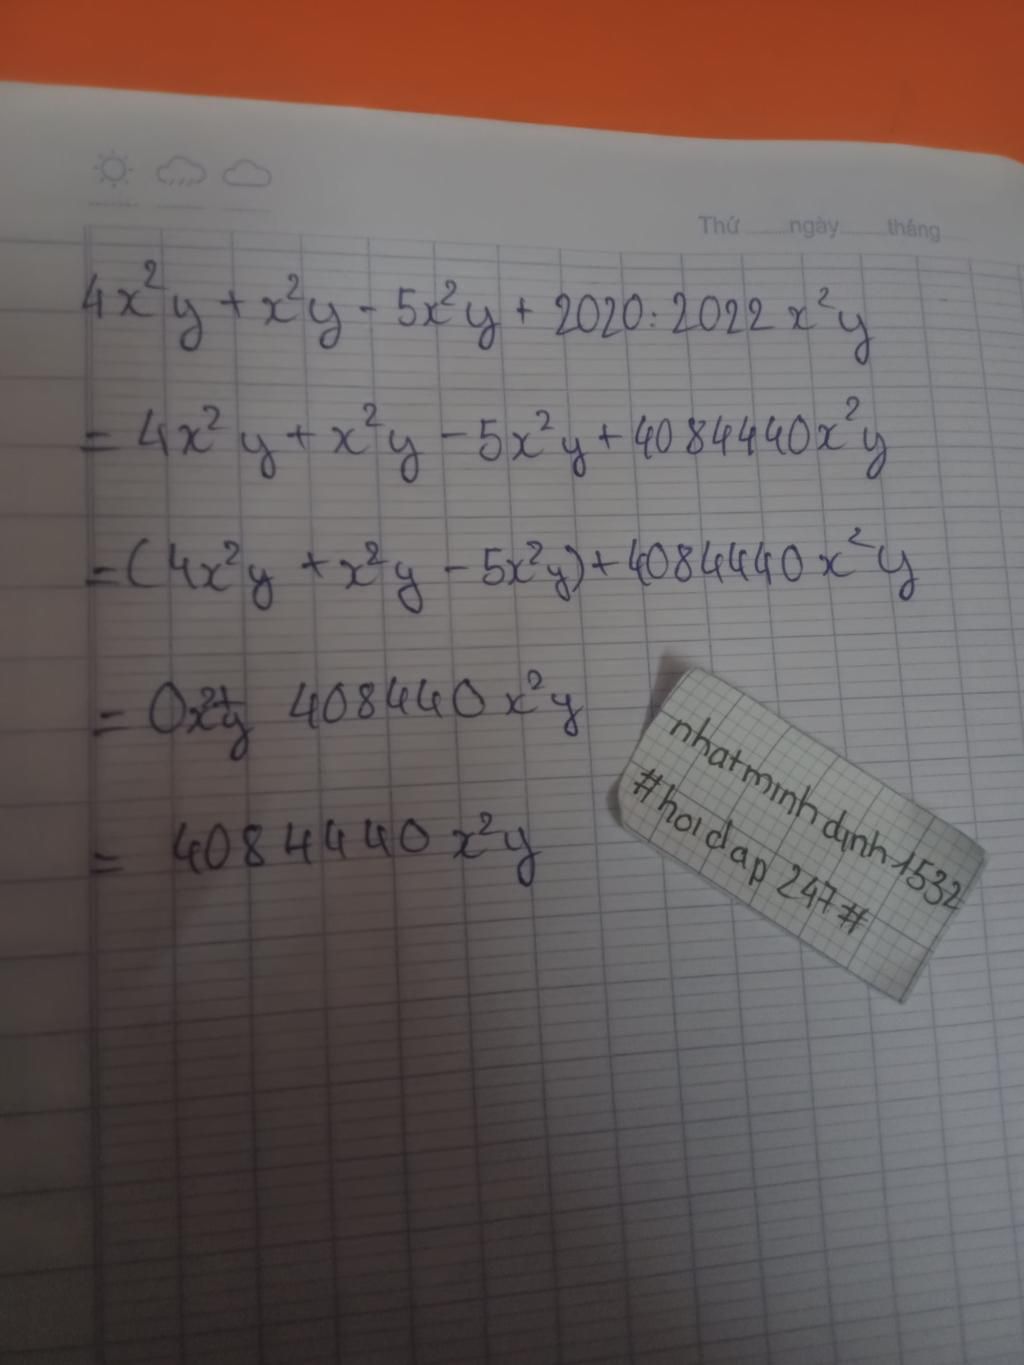 Thứ ngày tháng
4x²y + x²y - 5x²y + 2020:2022 x²y
= 4x²y + x²y - 5x²y + 4084440x²y
= (4x²y + x²y - 5x²y) + 4084440 x²y
= 0x²y + 408440 x²y
= 4084440 x²y
nhatminhdinh1532
#hoidap 247#